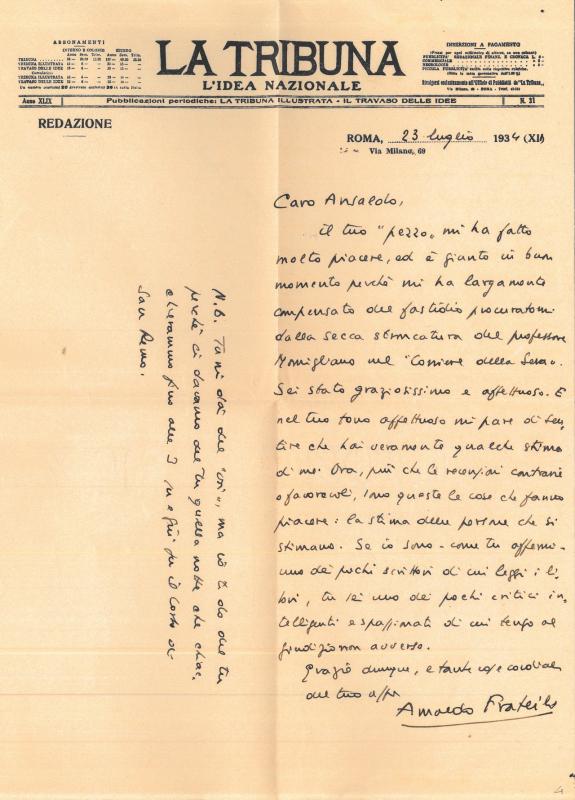 ABBONAMENTI
INTERNO E COLONIE
ESTERO
TRIBUNA
TRIBUNA ILLUSTRATA
TRAVASO DELLE IDEE
TRIBUNA ILLUSTRATA
TRAVASO DELLE IDEE
LA TRIBUNA
L'IDEA NAZIONALE
INSERZIONI A PAGAMENTO
COMMERCIALE
NECROLOGIE
Anno XLIX
Pubblicazioni periodiche: LA TRIBUNA ILLUSTRATA - IL TRAVASO DELLE IDEE
N. 31
REDAZIONE
ROMA, 23 luglio 1934 (XII)
Via Milano, 69
Caro Ansaldo,
il tuo "pezzo" mi ha fatto
molto piacere, ed è giunto in buon
momento perchè mi ha largamente
compensato del fastidio procuratomi
dalla secca stroncatura del professore
Momigliano nel "Corriere della Sera".
Sei stato graziosissimo e affettuoso. E
nel tuo tono affettuoso mi pare di sen-
tire che hai veramente qualche stima
di me. Ora, più che le recensioni contrarie
o favorevoli, sono queste le cose che fanno
piacere: la stima delle persone che si
stimano. Se io sono - come tu affermi -
uno dei pochi scrittori di cui leggi i li-
bri, tu sei uno dei pochi critici in-
telligenti e spassionati di cui tengo al
giudizio non avverso.
Grazie dunque, e tante cose cordiali
del tuo aff.
Arnaldo Frateili
N.B. Tu mi dai del "voi", ma io ti do del tu
perchè ci davamo del tu quella notte che chiac-
chierammo fino alle 3 su e giù per il Corso di
San Remo.
4